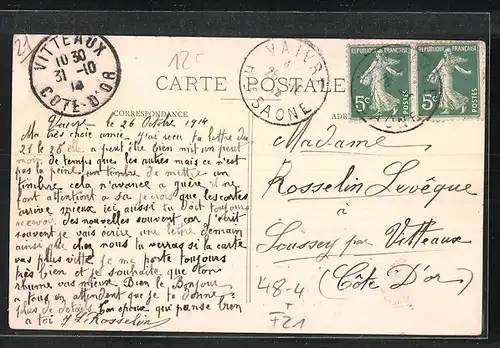 21
12-
VITTEAUX
10 30
31 -10
14
COTE-D'OR
VAIVRE
Hte SAONE
RÉPUBLIQUE FRANÇAISE
5c
POSTES
RÉPUBLIQUE FRANÇAISE
5c
POSTES
SAONE
CARTE POSTALE
CORRESPONDANCE
le 26 Octobre 1914
Ma très chère amie j'ai reçu ta lettre du
21 le 25 elle a peut être bien mit un peut
moin de temps que les autres mais ce n'est
pas la peine un timbre de mettre un
timbre cela n'avance a guère il ne
font attention a sa je crois que les cartes
arrive mieux ici aussi tu doit toujours
recevoir des nouvelles souvent car j'écrit
souvent je vais écrire une lettre demain
ainsi que chez nous tu verras si la carte
vas plus vite je me porte toujours
très bien et je souhaite que ton
rhume vas mieux Bien le Bonjour
a tous en attendent que je te donne
plus de détails ton époux qui pense bien
a toi J. L. Rosselin
Madame
Rosselin Levêque
à
Soussey par Vitteaux
(Côte D'or)
48-4
+
F21